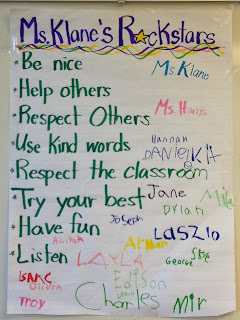 Ms. Klane's Rockstars
* Be nice
Ms. Klane
* Help others
* Respect Others
Ms. Harris
* Use kind words
Hannah
DANIELKH
* Respect the classroom
* Try your best
Jane
Mike
Dylan
* Have fun
Joseph
LASZlo
Aliyah
* Listen
LAYLA
George
ISAAC
Olivia
Edison
Troy
Charles
Mir